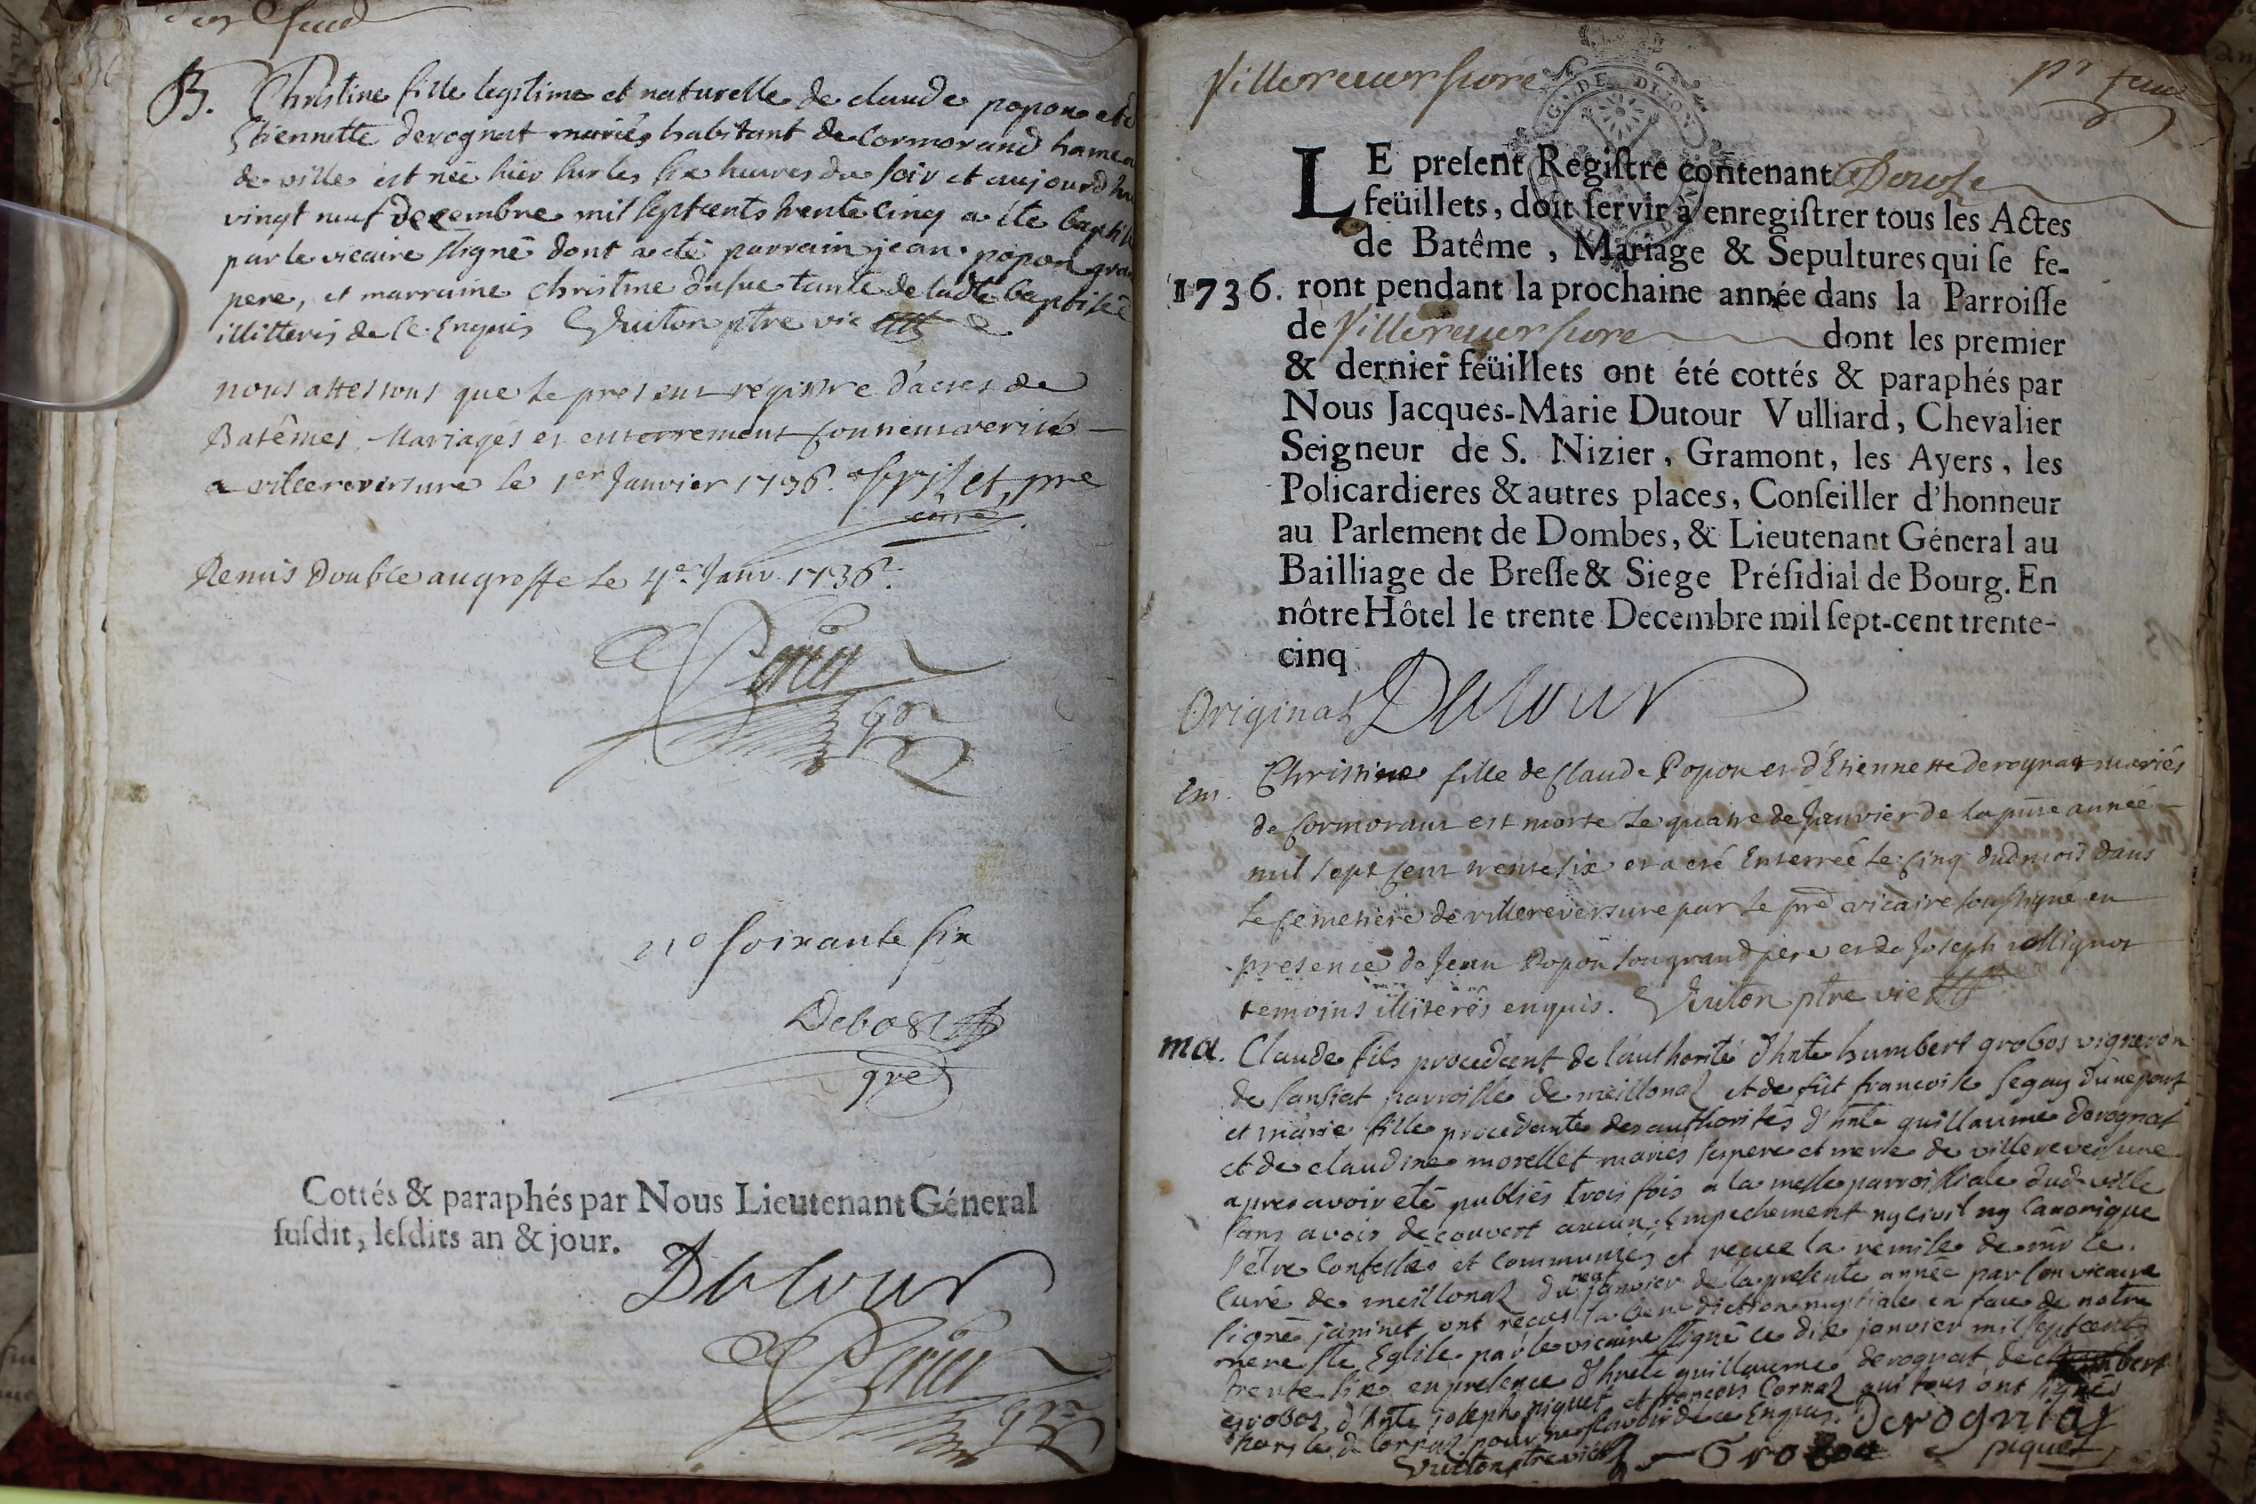 B. Christine fille legitime et naturelle de claude popon et d
Etiennette derognat mariés habitant de Cormorand hamea
de ville est née hier sur les six heures du soir et aujourd'hu
vingt neuf decembre mil sept cents trente cinq a été baptisé
par le vicaire signé dont acte parrain jean popon gra
pere, et marraine christine dusue tante de ladte baptisée
illitteris de ce Enquis Vuiton ptre vic
nous attestons que le present registre d'actes de
Batêmes Mariages et enterrement contient verité
a villereversure le 1er Janvier 1736. pre
curé
Remis double au greffe le 4e Janv. 1736.
no soixante six
Debost
gre
Cottés & paraphés par Nous Lieutenant Géneral
suſdit, leſdits an & jour.
Dutour
Villereversure
pr feuil
LE preſent Regiſtre contenant Douze
feüillets, doit ſervir à enregiſtrer tous les Actes
de Batême, Mariage & Sepultures qui ſe fe-
1736. ront pendant la prochaine année dans la Parroiſſe
de Villereversure dont les premier
& dernier feüillets ont été cottés & paraphés par
Nous Jacques-Marie Dutour Vulliard, Chevalier
Seigneur de S. Nizier, Gramont, les Ayers, les
Policardieres & autres places, Conſeiller d'honneur
au Parlement de Dombes, & Lieutenant Géneral au
Bailliage de Breſſe & Siege Préſidial de Bourg. En
nôtre Hôtel le trente Decembre mil ſept-cent trente-
cinq
Original Dutour
Em. Christine fille de Claude Popon et d'Etiennette derognat mariés
de Cormorant est morte le quatre de Janvier de la pnte année
mil sept cent trente six et a eté Enterreé le cinq dud mois dans
le cemetiere de villereversure par le pre vicaire soussigné en
presence de Jean Popon son grand pere et de Joseph Mignot
temoins illiterés enquis. Vuiton ptre vic
ma. Claude fils procedant de l'authorité d'hnte humbert grobos vigneron
de sansiat parroisse de meillonaz et de fût francoise segay d'une part
et marie fille procedante des authorités d'hnte guillaume derognat
et de claudine morellet mariés ses pere et mere de villereversure
apres avoir eté publiés trois fois a la messe parroissiale dud ville
sans avoir decouvert aucun Empechement ny civil ny Canonique
s'etre Confessés et communiés et reçue la remise de mr le
curé de meillonaz du neuf janvier de la presente année par son vicaire
signé janinet ont reçus la benediction nuptiale en face de notre
mere ste Eglise par le vicaire signé ce dix janvier mil sept cent
trente six en presence d'hnete guillaume derognat de humbert
grobos d'hnte joseph piquet et françois Cornaz qui tous ont signés
hors le d Cornaz pour ne sçavoir de ce Enquis. Derognat
Vuiton ptre vic Grobos piquet